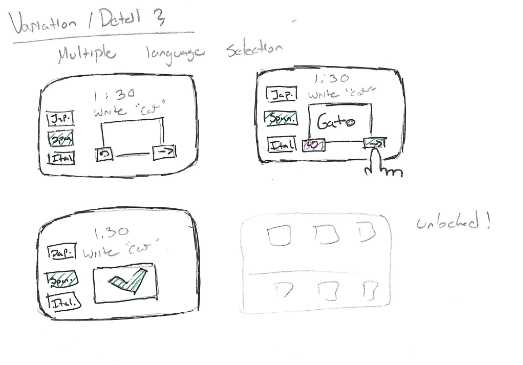 Variation / Detail 3
Multiple language Selection
1:30
Write "Cat"
Jap.
Span.
Ital
1:30
Write "Cat"
Jap.
Span.
Ital
Gato
1:30
Write "Cat"
Jap.
Span.
Ital.
unlocked!